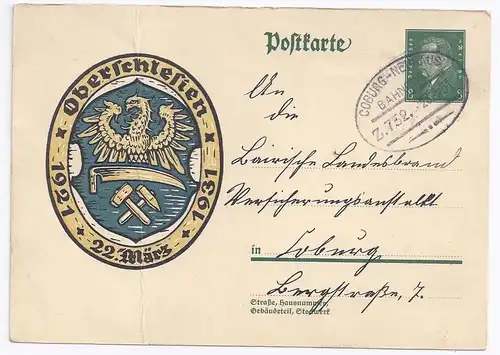 Postkarte
Oberschlesien
1921 1931
22. März
8 8
COBURG-NE
BAHN
Z. 752.
An
die
Bairische Landesbrand
Versicherungsanstallt
in Coburg
Bergstraße, 7.
Straße, Hausnummer,
Gebäudeteil, Stockwerk